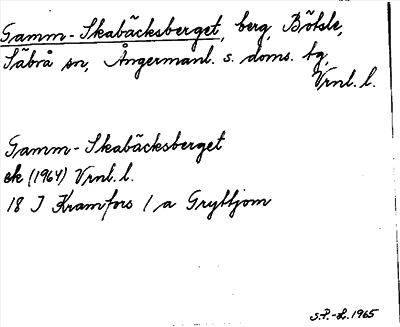 Gamm-Skabäcksberget, berg, Bölsle,
Säbrå sn, Ångermanl. s. doms. tg,
Vrnl. l.
Gamm-Skabäcksberget
ek (1964) Vrnl. l.
18 J Kramfors 1 a Gryttjom
S.P.-L. 1965